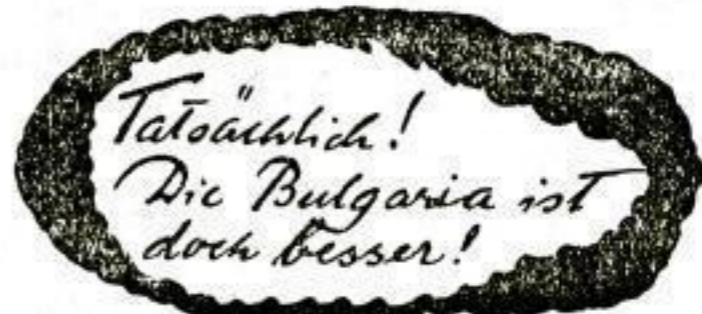 Tatsächlich!
Die Bulgaria ist
doch besser!